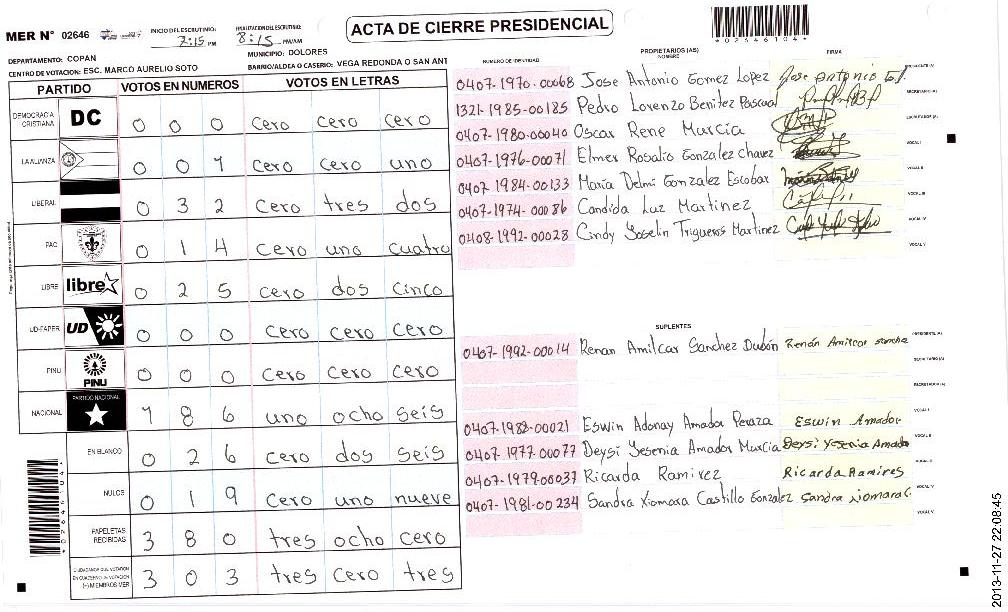 MER N° 02646
INICIO DEL ESCRUTINIO: 7:15 PM
FINALIZACION DEL ESCRUTINIO: 8:15 PM/AM
ACTA DE CIERRE PRESIDENCIAL
*02646104*
DEPARTAMENTO: COPAN
MUNICIPIO: DOLORES
CENTRO DE VOTACION: ESC. MARCO AURELIO SOTO
BARRIO/ALDEA O CASERIO: VEGA REDONDA O SAN ANT
PARTIDO VOTOS EN NUMEROS VOTOS EN LETRAS
DEMOCRACIA CRISTIANA DC 0 0 0 cero cero cero
LA ALIANZA 0 0 1 cero cero uno
LIBERAL 0 3 2 cero tres dos
PAC 0 1 4 cero uno cuatro
LIBRE libre 0 2 5 cero dos cinco
UD-FAPER UD 0 0 0 cero cero cero
PINU PINU 0 0 0 cero cero cero
NACIONAL PARTIDO NACIONAL 1 8 6 uno ocho seis
EN BLANCO 0 2 6 cero dos seis
NULOS 0 1 9 cero uno nueve
PAPELETAS RECIBIDAS 3 8 0 tres ocho cero
CIUDADANOS QUE VOTARON EN CUADERNO DE VOTACION (+) MIEMBROS MER 3 0 3 tres cero tres
PROPIETARIOS (AS)
NUMERO DE IDENTIDAD NOMBRE FIRMA
0407-1970-00068 Jose Antonio Gomez Lopez Jose Antonio G.L. PRESIDENTE (A)
1321-1985-00185 Pedro Lorenzo Benitez Pascual SECRETARIO (A)
0407-1980-00040 Oscar Rene Murcia ESCRUTADOR (A)
0407-1976-00071 Elmer Rosalio Gonzalez Chavez VOCAL I
0407-1984-00133 Maria Delmi Gonzalez Escobar VOCAL II
0407-1974-00086 Candida Luz Martinez VOCAL III
0408-1992-00028 Cindy Yoselin Trigueros Martinez VOCAL IV
VOCAL V
SUPLENTES
0407-1992-00014 Renan Amilcar Sanchez Dubón Renán Amilcar Sanche PRESIDENTE (A)
SECRETARIO (A)
ESCRUTADOR (A)
0407-1988-00021 Eswin Adonay Amador Peraza Eswin Amador VOCAL I
0407-1977-00077 Deysi Yesenia Amador Murcia Deysi Yesenia Amado VOCAL II
0407-1979-00037 Ricarda Ramirez Ricarda Ramires VOCAL III
0407-1981-00234 Sandra Xiomara Castillo Gonzalez Sandra Xiomara C. VOCAL IV
VOCAL V
2013-11-27 22:08:45